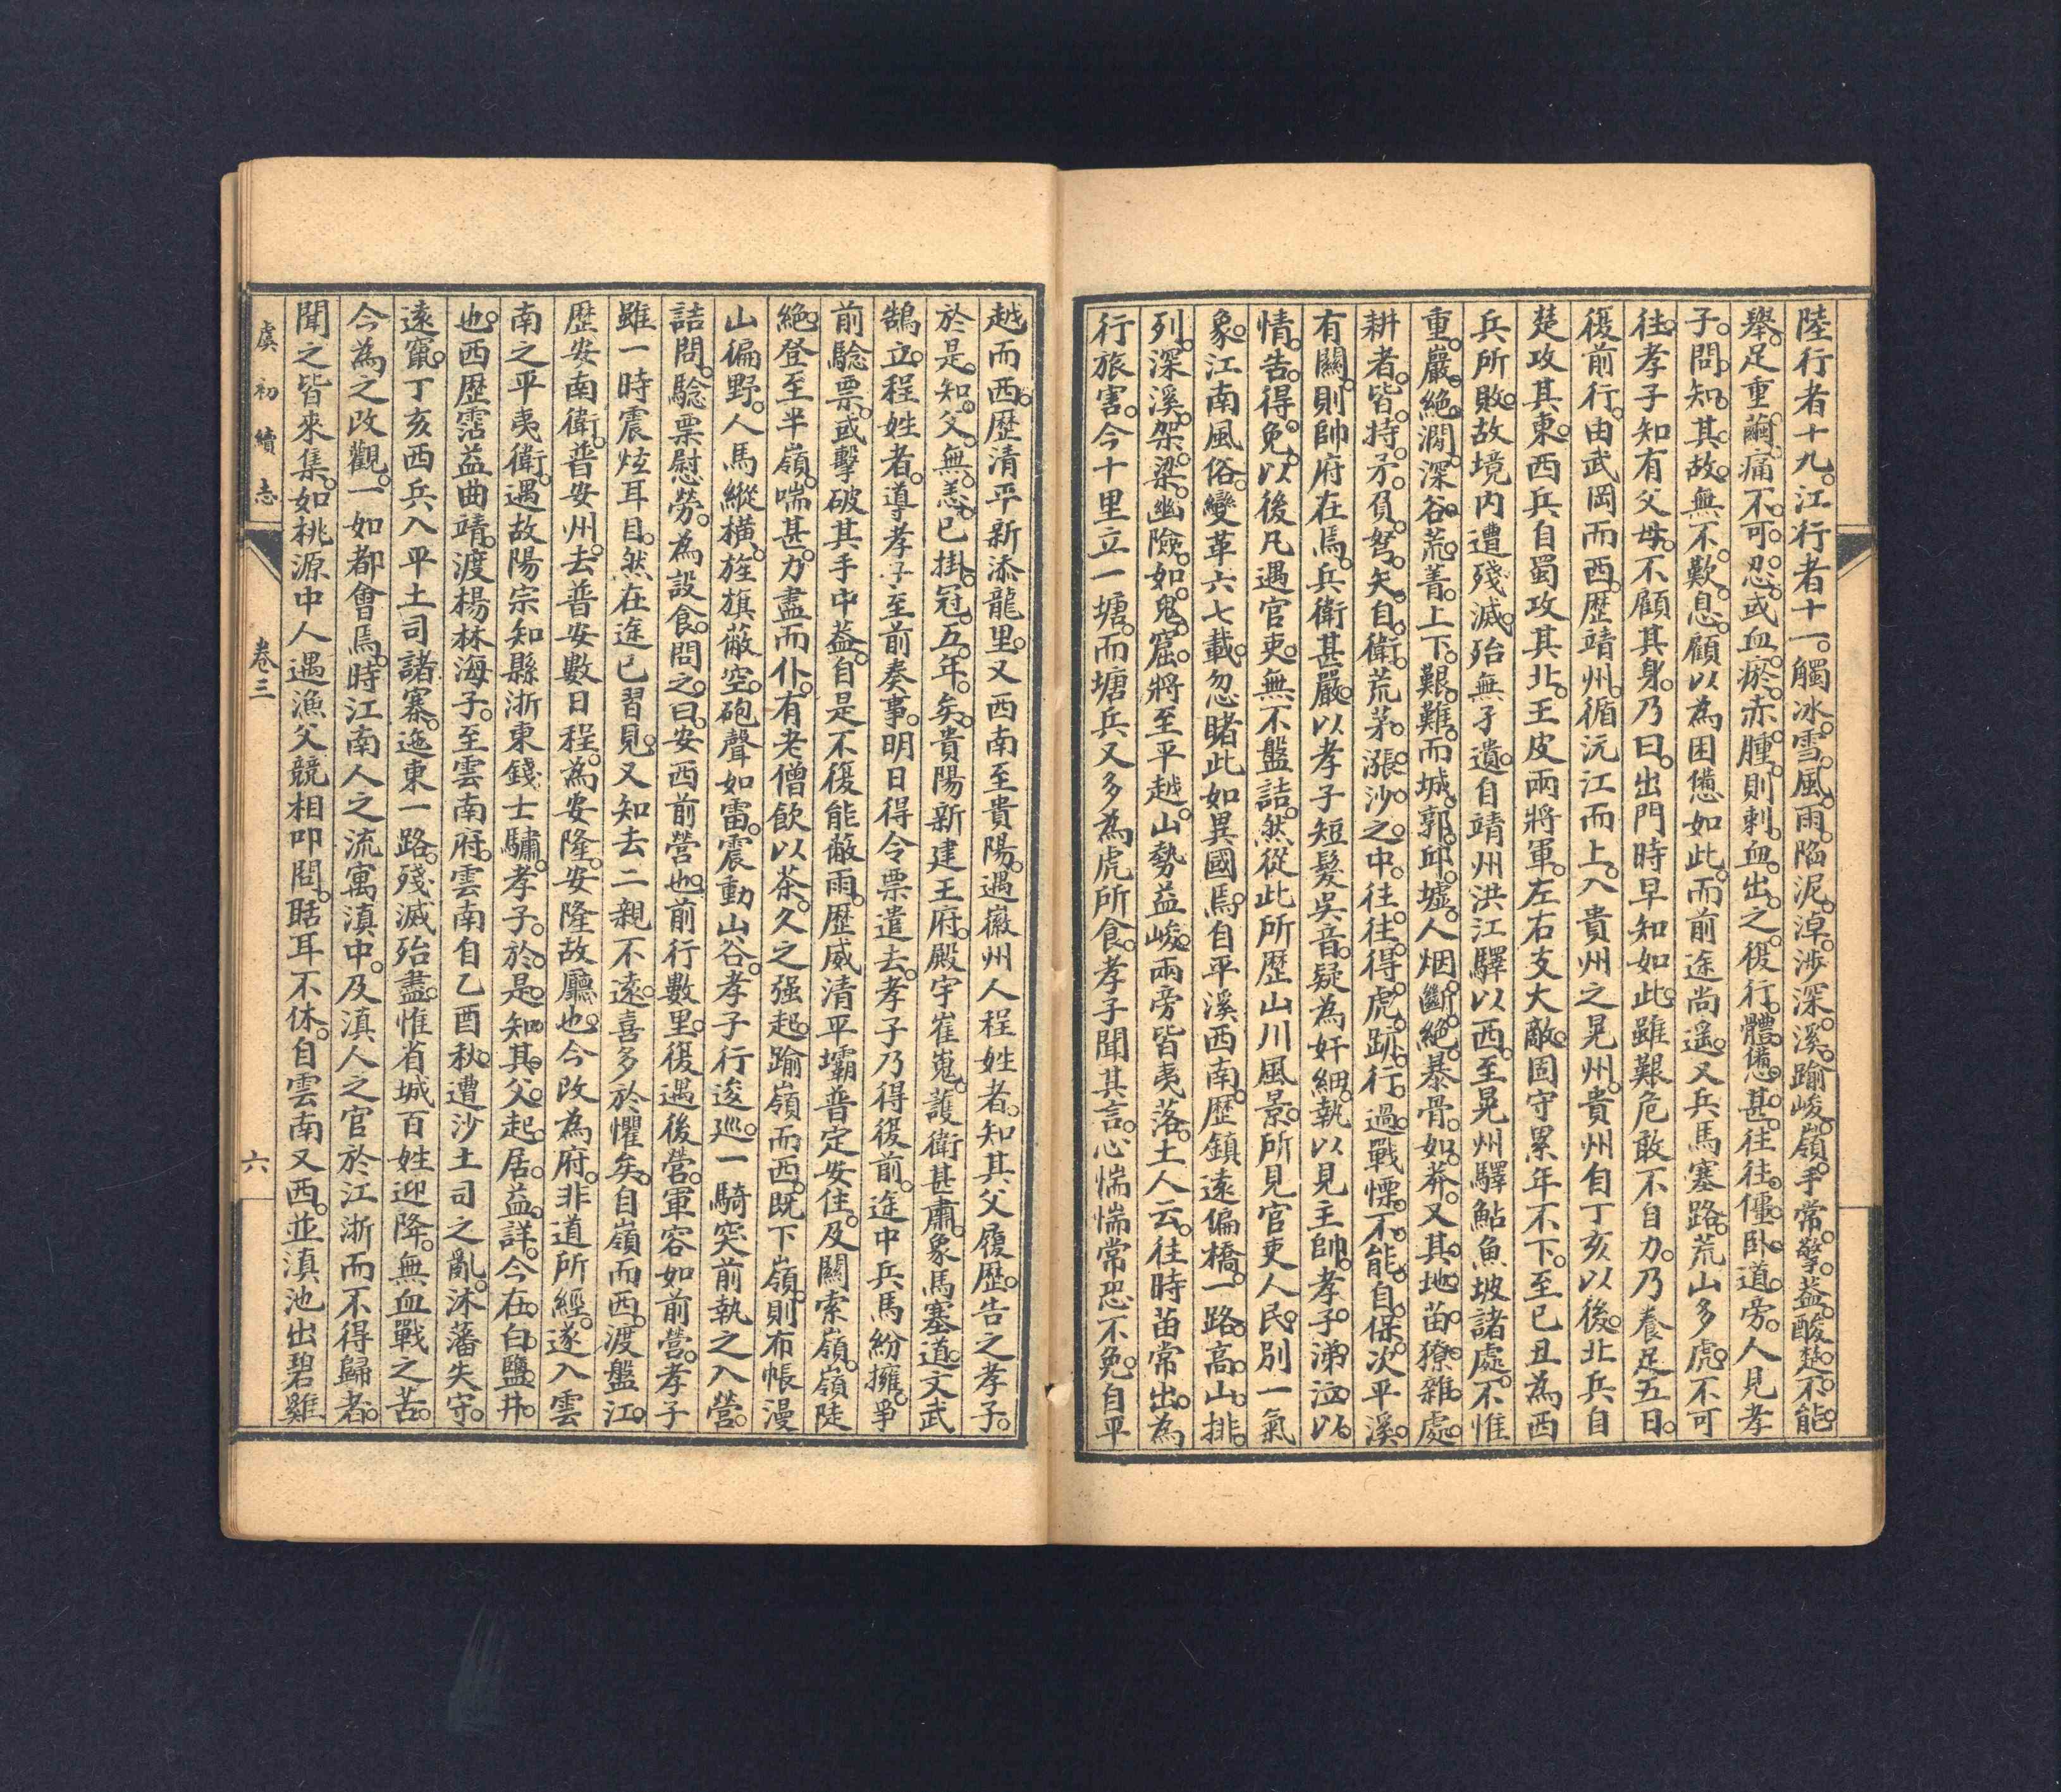 陸行者十九。江行者十一。觸冰。雪。風。雨。陷泥。淖。涉深。溪。踰峻。嶺。手常。擎。蓋。酸。楚。不。能。
舉。足重。繭。痛。不。可。忍。或。血。瘀。赤。腫。則刺。血。出。之。復行。體憊。甚。往往。僵。卧。道。旁。人見孝
子。問。知。其。故。無。不。歎。息。顧以為困憊如此。而前途尚遥。又兵馬塞路。荒山多虎。不可
往。孝子知有父母。不顧其身。乃曰。出門時早知如此。雖艱危敢不自力。乃養足五日。
復前行。由武岡而西。歷靖州。循沅江而上。入貴州之晃州。貴州自丁亥以後。北兵自
楚攻其東。西兵自蜀攻其北。王皮兩將軍。左右支大敵。固守累年不下。至己丑為西
兵所敗。故境內遭殘滅。殆無孑遺。自靖州洪江驛以西。至晃州驛鮎魚坡諸處。不惟
重。巖。絕。澗。深。谷。荒。菁。上下。艱。難。而城。郭。邱。墟。人烟。斷。絕。暴骨。如。莽。又其。地。苗。獠。雜。處。
耕者。皆。持。矛。負。弩。矢。自。衛。荒茅。漲。沙。之。中。往。往。得。虎。跡。行。過。戰慄。不。能。自。保。次平溪。
有關。則帥府在焉。兵衛甚嚴。以孝子短髮吳音。疑為奸細。執以見主帥。孝子涕泣以
情。告。得。免。以後凡遇官吏。無不盤詰。然從此所歷山川風景。所見官吏人民。別一氣
象。江南風俗。變革六七載。忽睹此如異國焉。自平溪西南。歷鎮遠偏橋。一路。高。山。排。
列。深。溪。架。梁。幽險。如。鬼。窟。將至平越。山勢益峻。兩旁皆夷落。土人云。往時苗常出。為
行旅害。今十里立一塘。而塘兵又多為虎所食。孝子聞其言。心惴惴常恐不免。自平
越而西。歷清平新添龍里。又西南至貴陽。遇徽州人程姓者。知其父履歷。告之孝子。
於是。知。父。無。恙。已掛。冠。五。年。矣。貴陽新建王府。殿宇崔嵬。護衛甚肅。象馬塞道。文武
鵠立。程姓者。導孝子至前奏事。明日得令票遣去。孝子乃得復前。途中兵馬紛擁。爭
前騐票。或擊破其手中蓋。自是不復能蔽雨。歷威清平壩普定安住。及關索嶺。嶺陡
絕。登至半嶺。喘甚。力盡而仆。有老僧飲以茶。久之强起。踰嶺而西。既下嶺。則布帳漫
山徧野。人馬縱橫。旌旗蔽空。砲聲如雷。震動山谷。孝子行逡巡。一騎突前執之入營。
詰問。騐票慰勞。為設食。問之。曰。安西前營也。前行數里。復遇後營。軍容如前營。孝子
雖一時震炫耳目。然在途已習見。又知去二親不遠。喜多於懼矣。自嶺而西。渡盤江。
歷安南衛。普安州。去普安數日程。為安隆。安隆故廳也。今改為府。非道所經。遂入雲
南之平夷衛。遇故陽宗知縣浙東錢士驌。孝子。於。是。知。其。父。起。居。益。詳。今在。白。鹽。井。
也。西歷霑益曲靖。渡楊林海子。至雲南府。雲南自乙酉秋。遭沙土司之亂。沐藩失守。
遠竄。丁亥西兵入平土司諸寨。迤東一路。殘滅殆盡。惟省城百姓迎降。無血戰之苦。
今為之改觀。一如都會焉。時江南人之流寓滇中。及滇人之官於江浙而不得歸者。
聞之皆來集。如桃源中人遇漁父競相叩問。聒耳不休。自雲南又西。並滇池出碧雞
虞初續志
卷三
六